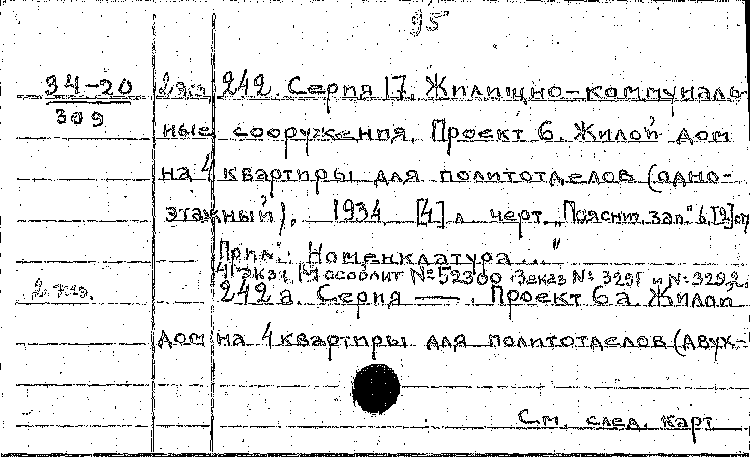 95
34-20 2 экз. 242. Серия 17. Жилищно-коммуналь-
309
ные сооружения. Проект 6. Жилой дом
на 4 квартиры для политотделов (одно-
этажный). 1934 [4] л черт. "Пояснит. зап." 6, [2] стр
Прил.: Номенклатура..."
экз. Мособлит № 52300 Заказ № 3291 и № 3292.
2 экз. 242а. Серия —. Проект 6а. Жилой
дом на 4 квартиры для политотделов (двух-
См. след. карт